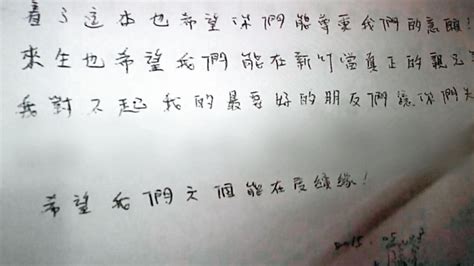 看了這本也希望你們能尊重我們的意願!
來生也希望我們能在新竹當真正的親
我對不起我的最要好的朋友們讓你們失
希望我們六個能在反續緣!
2015.05